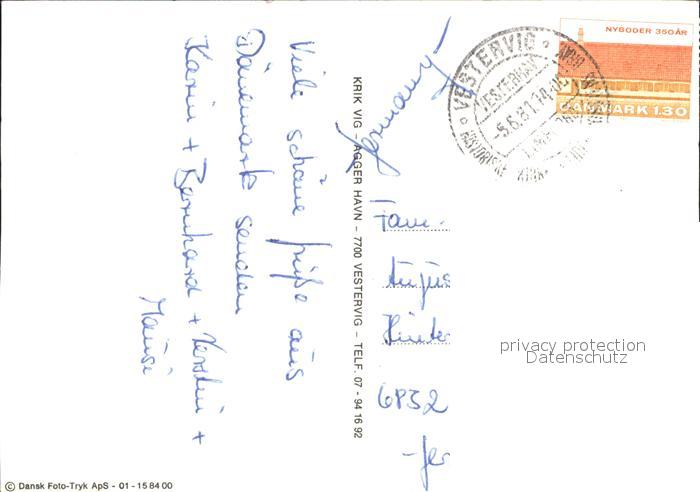 NYBODER 350 ÅR
DANMARK 130
VESTERVIG
VESTERHAV
-5.6.81.
HISTORISKE
Germany
Viele schöne Grüße aus
Dänemark senden
Karin + Bernhard + Kerstin +
Mausi
KRIK VIG - AGGER HAVN - 7700 VESTERVIG - TELF. 07 - 94 16 92
Fam.
6832
privacy protection
Datenschutz
© Dansk Foto-Tryk ApS - 01 - 15 84 00